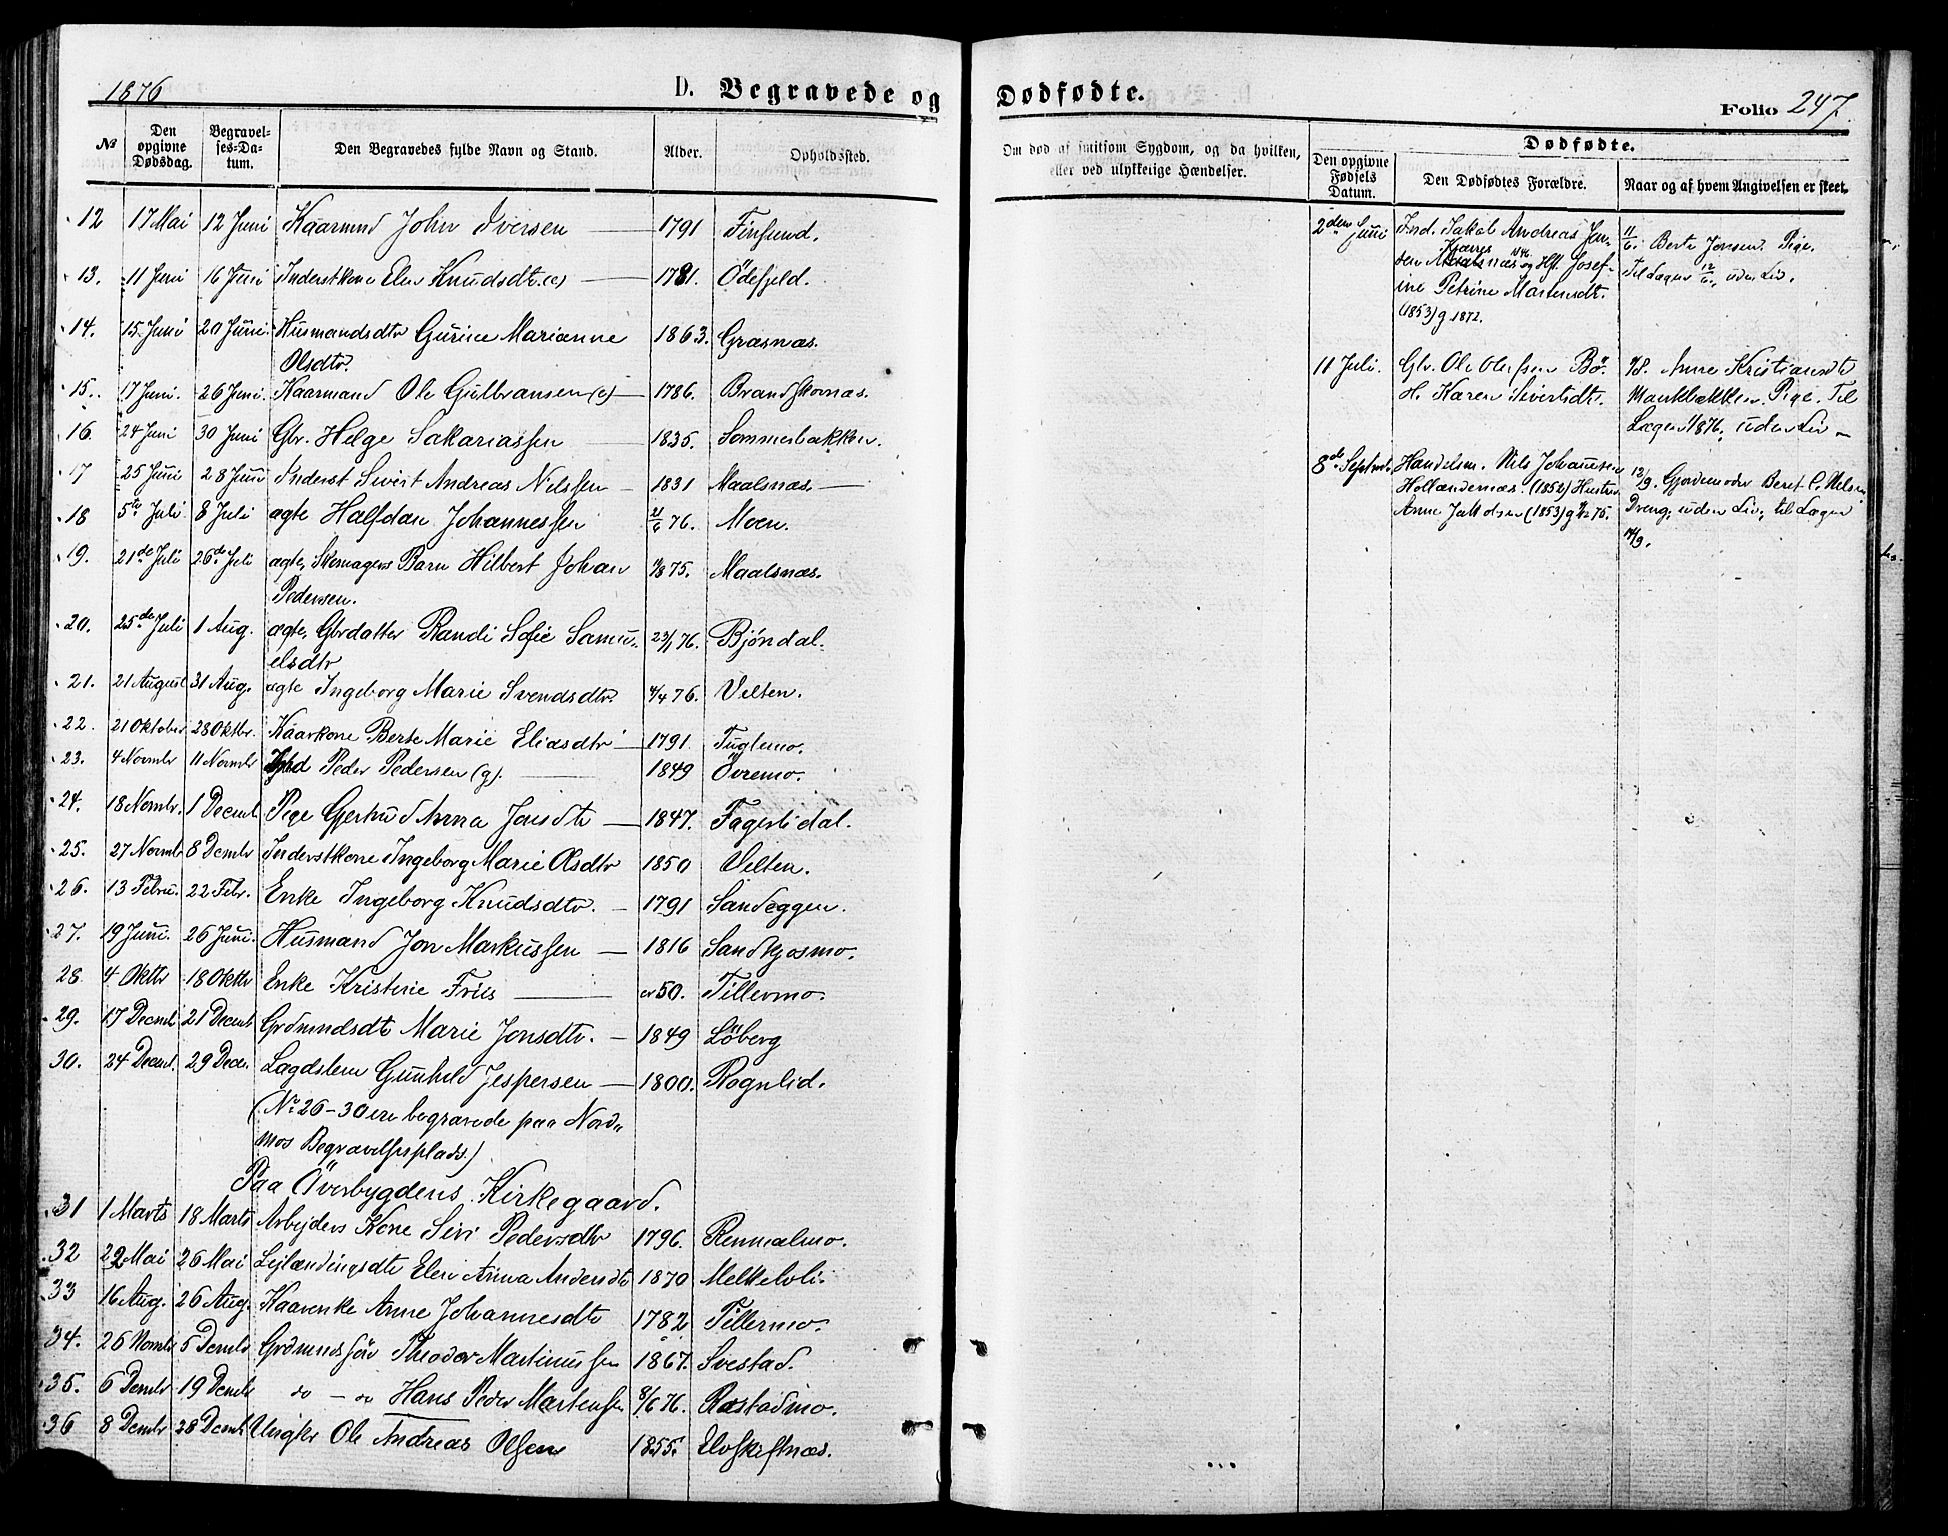 1876
D. Begravede og
№
Den opgivne Dødsdag.
Begravelses-Datum.
Den Begravedes fylde Navn og Stand.
Alder.
Opholdssted.
12 17 Mai 12 Juni Kaarmd John Iversen — 1791 Finsund.
13. 11 Juni 16 Juni Inderstkone Elen Knudsdtr. (e) — 1781. Ödefjeld.
14. 15 Juni 20 Juni Husmandsdtr Gurine Marianne 1863. Græsnæs.
Olsdtr.
15. 17 Juni. 26 Juni. Kaarmand Ole Gulbransen (e) — 1786. Brandskognæs.
16. 24 Juni 30 Juni Gbr. Helge Sakariassen — 1835. Sommerbakken.
17 25 Juni 28 Juni Inderst Sivert Andreas Nilssen — 1831 Maalsnæs. —
18 5te Juli 8 Juli ægte Halfdan Johannessen 21/6 76. Moen.
19. 21de Juli 26de Juli ægte, Skomagers Barn Hilbert Johan 1/8 75. Maalsnæs.
Pedersen.
20. 25de Juli 1 Aug. ægte, Gbrdatter Randi Sofie Samu-
elsdtr 23/1 76. Bjöndal.
21. 21 August 31 Aug. ægte Ingeborg Marie Svendsdtr. 4/4 76. Velten.
22. 21 Oktober 28 Oktbr. Kaarkone Berte Marie Eliasdtr — 1791. Fuglemo.
23. 4 Novmbr 11 Novmbr Peder Pedersen (g). — 1849 Övremo.
24. 18 Novmbr. 1 Decmb Pige Gjertrud Anna Jonsdtr — 1847. Fagerlidal.
25. 27 Novmbr 8 Decmbr Inderstkone Ingeborg Marie Olsdtr 1850 Velten.
26. 13 Febru. 22 Febr. Enke Ingeborg Knudsdtr. — 1791 Sandeggen.
27. 19 Juni. 26 Juni. Husmand Jon Markussen — 1816 Sandkjosmo.
28 4 Oktbr 18 Oktbr Enke Kristine Friis — 50. Tillermo.
29. 17 Decmbr 21 Decmb Grdmndsdtr Marie Jonsdtr. — 1849 Löberg
30. 24 Decmb. 29 Decm. Lægdslem Gunhild Jespersen — 1800. Rognlid.
(No 26-30 ere begravede paa Nord-
mos Begravelsesplads.)
Paa Överbygdens Kirkegaard.
31 1 Marts 18 Marts Arbejders Kone Siri Pedersdtr 1796. Rennælmo.
32 22 Mai 26 Mai Lejlændingsdtr Elen Anna Andersdtr 1870 Melkelvli.
33 16 Aug. 26 Aug. Kaarenke Anne Johannesdtr 1782 Tillermo.
34. 26 Novmbr 5 Decmbr Grdmndssön Theodor Martinussen 1867. Svestad.
35. 6 Decmbr 19 Decmbr do - do Hans Peder Martensen 8/6 76. Rostadmo.
36 8 Decmbr 28 Decmbr Ungkr Ole Andreas Olsen 1855. Elvskiftnæs.
Dødfødte.
Folio 247.
Om død af smitsom Sygdom, og da hvilken, eller ved ulykkelige Hændelser.
Dødfødte.
Den opgivne Fødsels Datum.
Den Dødfødtes Forældre.
Naar og af hvem Angivelsen er skeet.
2den Juni Ind. Jakob Andreas Jen- 11/6. Berte Jensen. Pige.
Kjærres
sen og Hst. Josef- Til Lægen 12/6, uden Liv.
ine Petrine Martensdtr.
(1853) g 1872.
11 Juli. Gbr. Ole Olufsen Bö. Anne Kristiansdtr
H. Karen Sivertsdtr. Maukbakken. Pige. Til
Lægen 1876, uden Liv —
8de Septmbr. Handelsm. Nils Johannesen 12/9. Gjordemoder Beret C. Nilsen
Hollændernæs. (1852) Hustru Dreng, uden Liv, til Lægen
Anne Olsen (1853) g 75. 14/9.